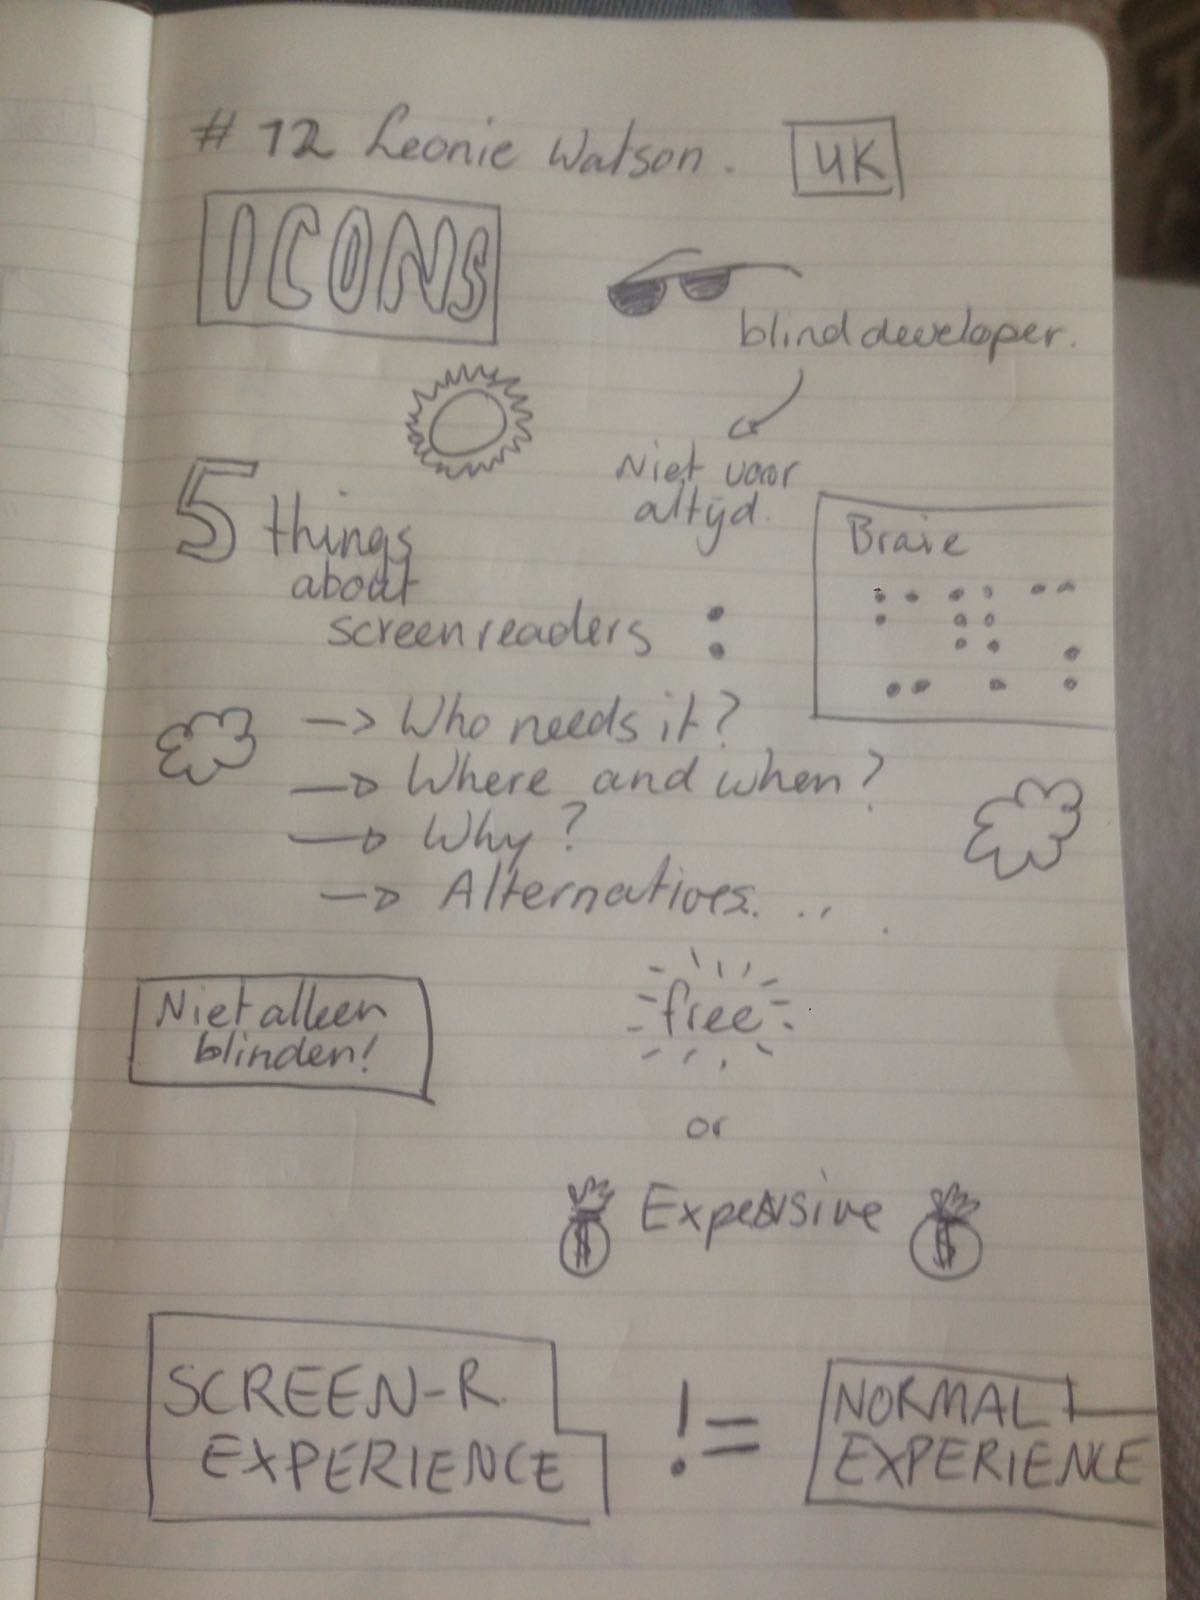 # 12 Leonie Watson.
UK
ICONS
blind developer.
Niet voor
altijd.
5 things
about
screenreaders :
Braie
-> Who needs it?
-> Where and when?
-> Why?
-> Alternatives...
Niet alleen
blinden!
free
or
$ Expensive $
SCREEN-R.
EXPERIENCE
!=
NORMAL
EXPERIENCE